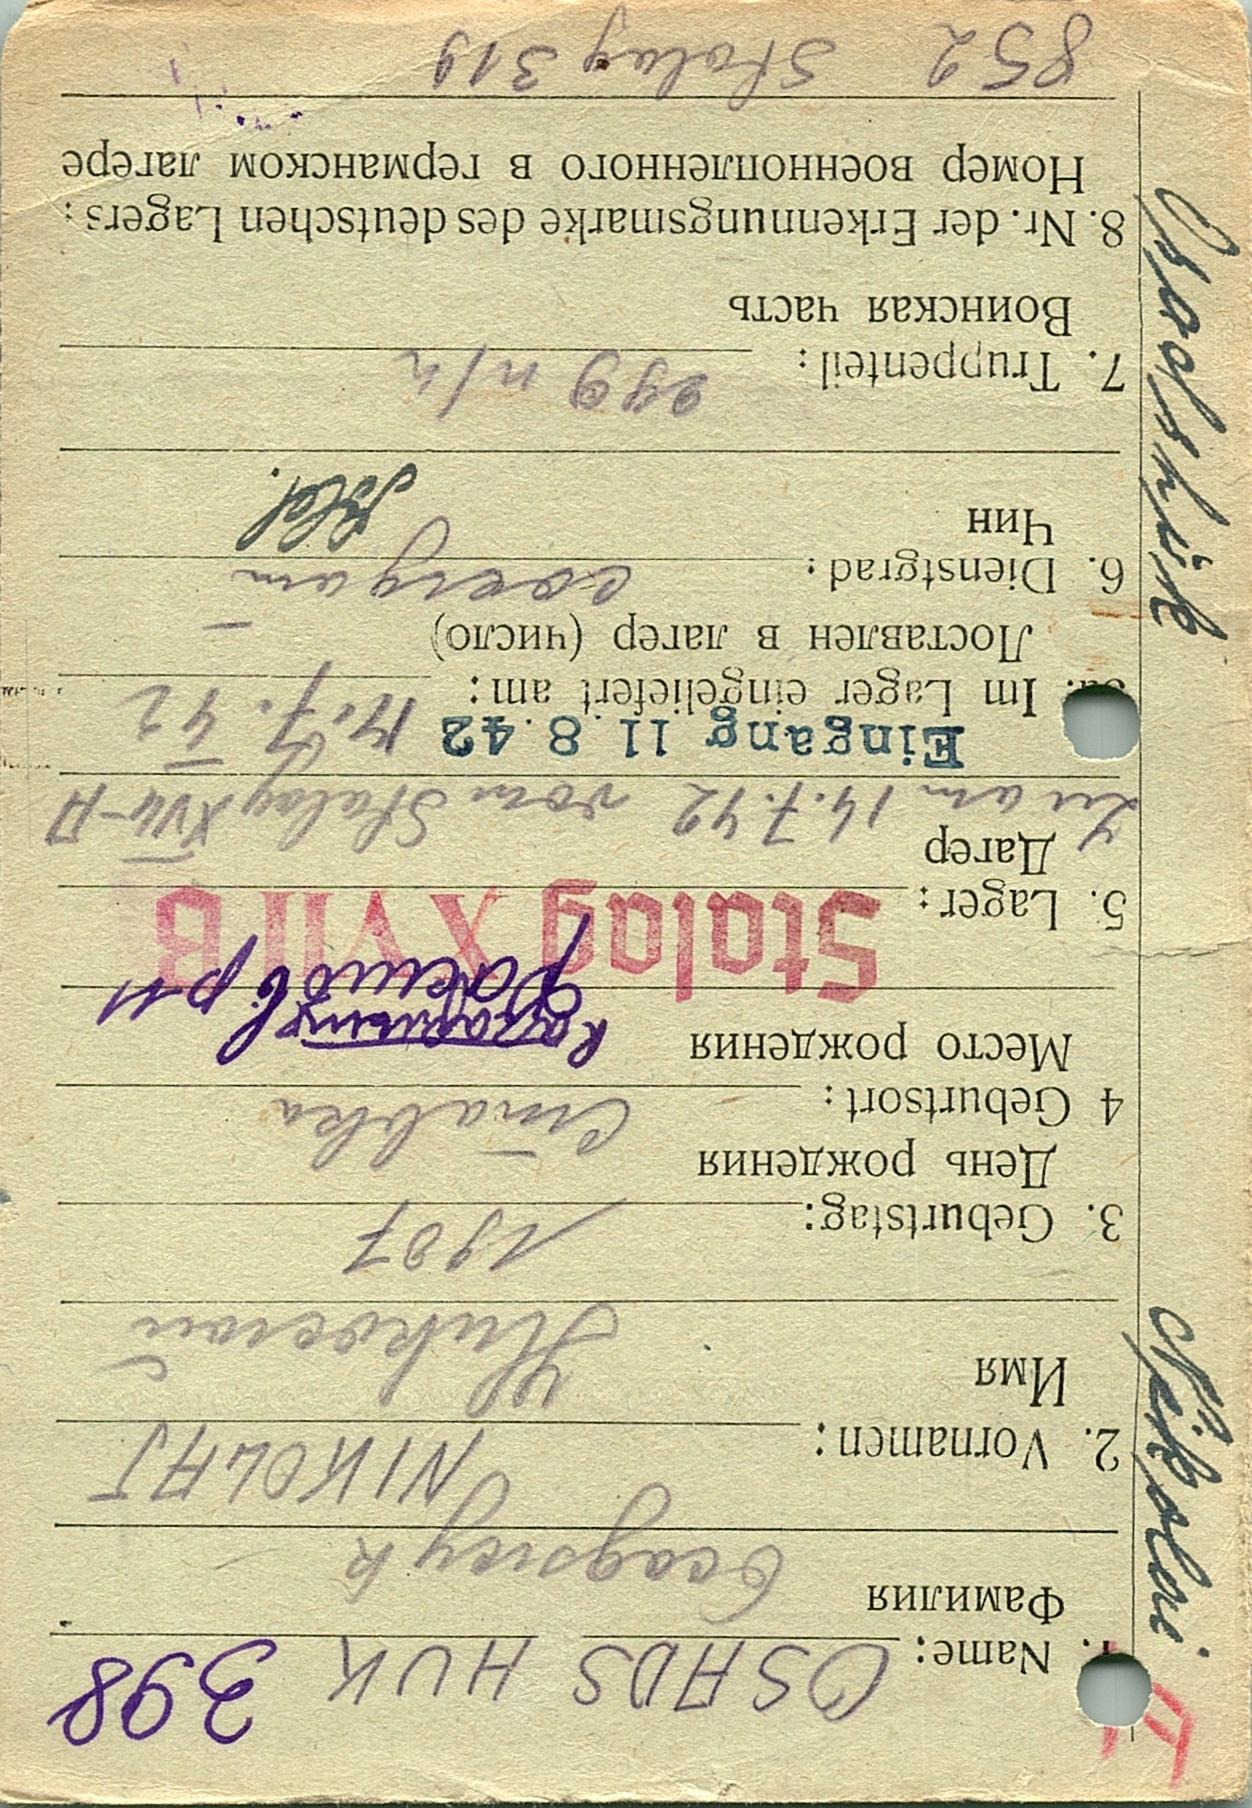 398
1. Name: OSADSHUK
Фамилия
Осадчук
2. Vornamen: NIKOLAJ
Имя
Николай
3. Geburtstag: 1907
День рождения
4 Geburtsort: Ставки
Место рождения
Stalag XVII B
5. Lager:
Лагер
Zu am 14.7.42 vom Stalag XVII-A
Eingang 11.8.42
5a. Im Lager eingeliefert am: 14.7.42
Поставлен в лагер (число)
6. Dienstgrad: солдат
Чин
Sold.
7. Truppenteil: 299 п/п
Воинская часть
8. Nr. der Erkennungsmarke des deutschen Lagers:
Номер военнопленного в германском лагере
852 Stalag 319
Osadshuk
Nikolai